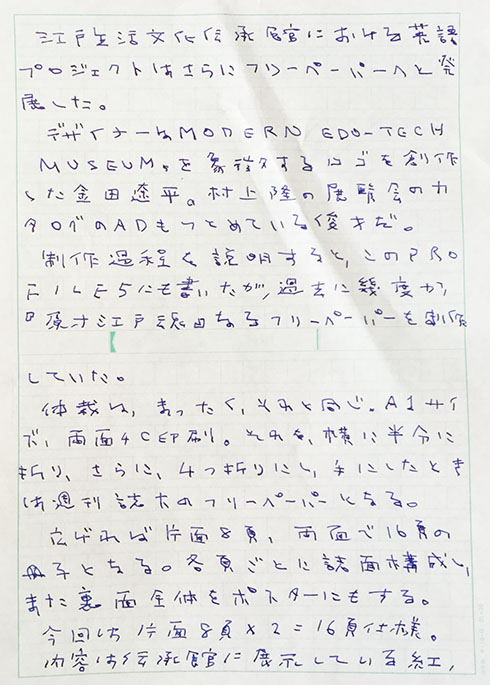 江戸生活文化伝承館における英語
プロジェクトはさらにフリーペーパーへと発
展した。
デザイナーはMODERN EDO-TECH
MUSEUM。を象徴するロゴを創作
した金田遼平。村上隆の展覧会のカ
タログのADもつとめている俊才だ。
制作過程を説明すると、このPRO
FILE5にも書いたが、過去に幾度か
『原寸江戸 なるフリーペーパーを制作
していた。
体裁は、まったく、それと同じ。A1サイ
で、両面4C 印刷。それを、横に半分に
折り、さらに、4つ折りにし、手にしたとき
は週刊誌大のフリーペーパーとなる。
広げれば片面8頁、両面で16頁の
冊子となる。各頁ごとに誌面構成し、
また裏面全体をポスターにもする。
今回は片面8頁×2=16頁仕様。
内容は伝承館に展示している紅、